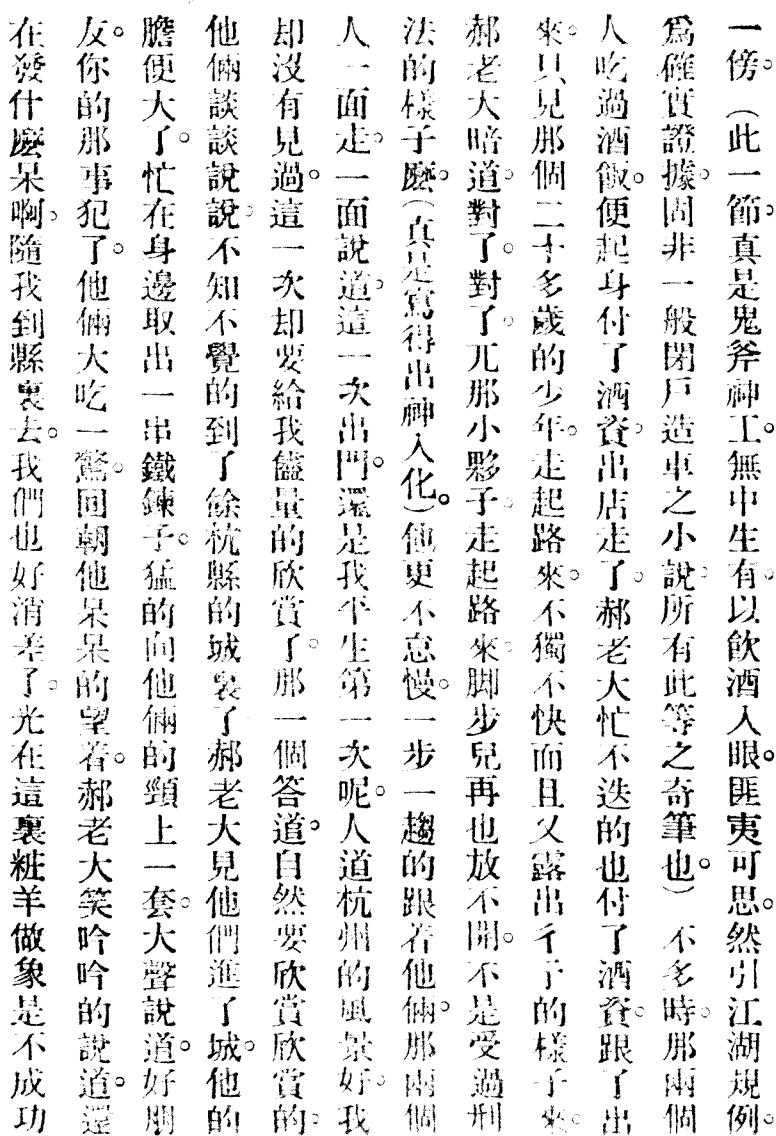 一傍。(此一節。真是鬼斧神工。無中生有。以飲酒入眼。匪夷可思。然引江湖規例。
爲確實證據。固非一般閉戶造車之小說。所有此等之奇筆也。)不多時。那兩個
人吃過酒飯。便起身付了酒資。出店走了。郝老大忙不迭的也付了酒資。跟了出
來。只見那個二十多歲的少年。走起路來。不獨不快。而且又露出彳亍的樣子來。
郝老大暗道。對了。對了。兀那小夥子。走起路來。脚步兒再也放不開。不是受過刑
法的樣子麼。(真是寫得出神入化。)他更不怠慢。一步一趨的跟着他倆。那兩個
人一面走。一面說道。這一次出門。還是我平生第一次呢。人道杭州的風景好。我
却沒有見過。這一次却要給我儘量的欣賞了。那一個答道。自然要欣賞欣賞的。
他倆談談說說。不知不覺的到了餘杭縣的城裏了。郝老大見他們進了城。他的
膽便大了。忙在身邊取出一串鐵鍊子。猛的向他倆的頸上一套。大聲說道。好朋
友。你的那事犯了。他倆大吃一驚。回朝他呆呆的望着。郝老大笑吟吟的說道。還
在發什麼呆啊。隨我到縣裏去。我們也好消差了。光在這裏粧羊做象是不成功